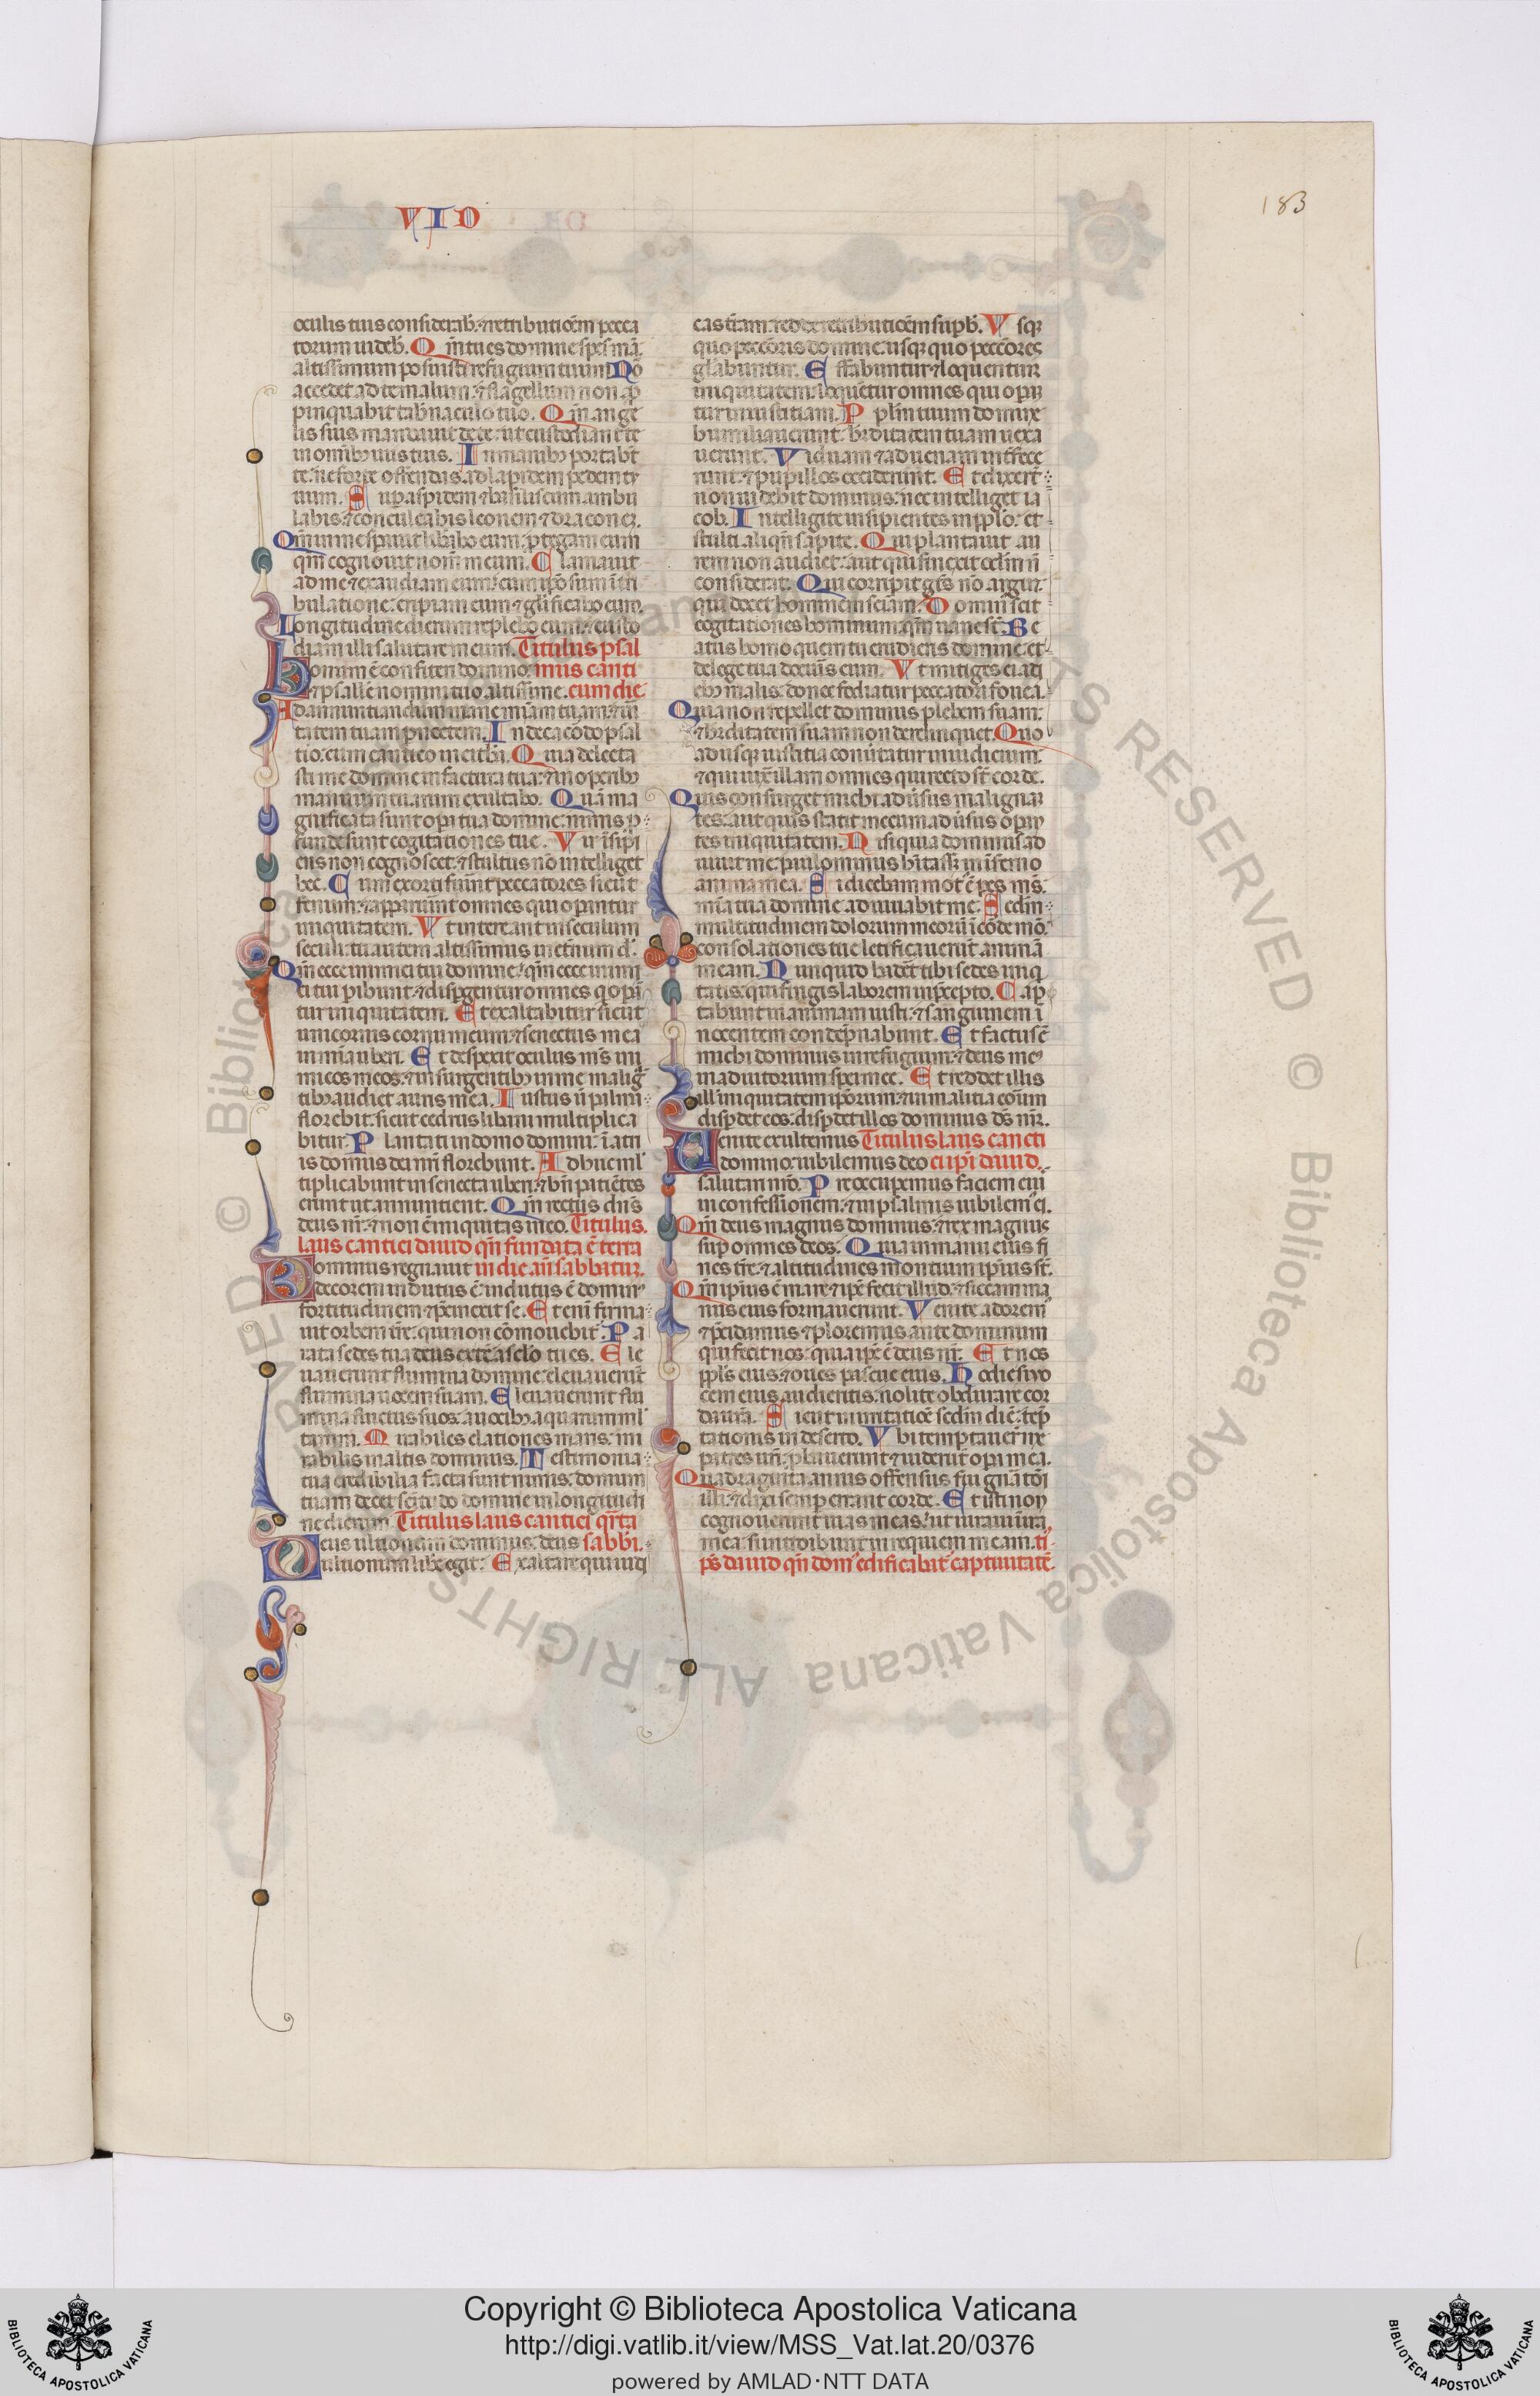 VID
183
oculis tuis considerab̄. ⁊ retributiōem pecca
torum uideb̄. Qm̄ tu es domine spes mā.
altissimum posuisti refugium tuum. Nō
accedet ad te malum. ⁊ flagellum non ap̄
pinquabit tab̄naculo tuo. Qm̄ ange
lis suis mandauit de te. ut custodiant te
in omīb; uiis tuis. In manib; portabt̄
te. ne forte offendas ad lapidem pedem tu
um. Sup aspidem ⁊ basiliscum ambu
labis. ⁊ conculcabis leonem ⁊ draconeȝ.
Qm̄ in me sperauit lib̄abo eum. protegam eum
qm̄ cognouit nom̄ meum. Clamauit
ad me ⁊ exaudiam eum. cum ip̄o sum ī tri
bulatione. eripiam eum ⁊ gl̄ificabo eum.
Longitudine dierum replebo eum. ⁊ ostēo
diam illi salutare meum. Titulus psal
Bonum ē confiteri domino. mus canti
⁊ psalle̅ nomini tuo altissime. cum die
Ad annuntiandum mane mīam tuam. ⁊ ūi
tatem tuam p noctem. In decacordo psal
tio. cum cantico in cithā. Quia delecta
sti me domine in factura tua. ⁊ in operib;
manuum tuarum exultabo. Quā ma
gnificata sunt opa tua domine. nimis p
funde sunt cogitationes tue. Vir īsipi
ens non cognoscet. ⁊ stultus nō intelliget
hec. Cum exorti fūint peccatores sicut
fenum. ⁊ apparuīnt omnes qui opantur
iniquitatem. Vt intereant in seculum
seculi. tu autem altissimus in et̄num d̄.
Qm̄ ecce inimici tui domine. qm̄ ecce inimi
ci tui pibunt. ⁊ dispgentur omnes q opā
tur iniquitatem. Et exaltabitur sicut
unicornis cornu meum. ⁊ senectus mea
in mīa uberi. Et despexit oculus ms̄ ini
micos meos. ⁊ in surgentib; in me malig̅
tib; audiet auris mea. Iustus ū palma
florebit. sicut cedrus libani multiplica
bitur. Plantati in domo domini. ī atri
is domus dei nr̄i florebunt. Adhuc ml̄
tiplicabunt in senecta uberi. ⁊ bn̄ patiētes
erunt ut annuntient. Qm̄ rectus dn̄s
deus nr̄. ⁊ non ē iniquitas in eo. Titulus.
laus cantici dauid qn̄ fundata ē terra
Dominus regnauit in die an̄ sabbatum.
decorem indutus ē. indutus ē domin'
fortitudinem ⁊ pcinxit se. Et eni firma
uit orbem tr̄e. qui non cōmouebit'. Pa
rata sedes tua deus ex tc̄ a sc̄lo tu es. Ele
uauerunt flumina domine. eleuauerūt
flumina uocem suam. Eleuauerunt flu
mina fluctus suos. a uocib; aquarum ml̄
tarum. Mirabiles elationes maris. mi
rabilis in altis dominus. Testimonia
tua credibilia facta sunt nimis. domum
tuam decet sc̄itudo domine in longitudi
ne dierum. Titulus laus cantici qr̄ta
Deus ultionum dominus. deus sabb̄i.
ultionum libe egit. Exaltare qui iudi
cas tr̄am. redde retributiōem supb̄. Vsq;
quo peccōris domine. usq; quo peccōres
gl̄abuntur. Effabuntur ⁊ loquentur
iniquitatem. loquētur omnes qui opan
tur iniustitiam. Ppl̄m tuum domine
humiliauerunt. hr̄ditatem tuam uexa
uerunt. Viduam ⁊ aduenam interfece
runt. ⁊ pupillos occiderunt. Et dixert̄
non uidebit dominus. nec intelliget ia
cob. Intelligite insipientes in pplo. et
stulti aliqn̄ sapite. Qui plantauit au
rem non audiet. aut qui finxit oclm̄ n̄
considerat. Qui corripit gēs nō arguī.
qui docet hominem sciām. Domin' scit
cogitationes hominum. qm̄ uane st̄. Be
atus homo quem tu erudieris domine. et
de lege tua docuīs eum. Vt mitiges ei a di
eb; malis. donec fodiatur peccatori fouea.
Quia non repellet dominus plebem suam.
⁊ hr̄ditatem suam non derelinquet. Quo
adusq; iustitia conūtatur in iudicium.
⁊ qui iux̄ illam omnes qui recto st̄ corde.
Quis consurget michi aduīsus malignā
tes. aut quis stabit mecum aduīsus opan
tes iniquitatem. Nisi quia dominus ad
iuuit me. paulominus hītass; in īferno
anima mea. Si dicebam mot' ē pes ms̄.
mīa tua domine adiuuabit me. Secdm̄
multitudinem dolorum meorū ī corde mō.
consolationes tue letificauerūt animā
meam. Nunquid hadet tibi sedes iniq
tatis. qui fingis laborem in pcepto. Cap
tabunt in animam iusti. ⁊ sanguinem ī
nocentem condēpnabunt. Et factus ē
michi dominus in refugium. ⁊ deus me'
in adiutorium spei mee. Et reddet illis
ill' iniquitatem ip̄orum. ⁊ in malitia eoīum
dispdet eos. dispdet illos dominus ds̄ nr̄.
Uenite exultemus Titulus laus cancti
domino. iubilemus deo ci ip̄i dauid.
salutari nr̄o. Preoccupemus faciem eiu
in confessionem. ⁊ in psalmis iubilem' ei.
Qm̄ deus magnus dominus. ⁊ rex magnus
sup omnes deos. Quia in manu eius fi
nes tr̄e. ⁊ altitudines montium ip̄ius st̄.
Qm̄ ip̄ius ē mare ⁊ ip̄e fecit illud. ⁊ siccam ma
nus eius formauerunt. Venite adorem'
⁊ pcidamus ⁊ ploremus ante dominum
qui fecit nos. quia ip̄e ē deus nr̄. Et nos
ppls eius. ⁊ oues pascue eius. Hodie si uo
cem eius audieritis. nolite obdurare cor
da ur̄a. Sicut in irritatiōe secdm̄ diē. tēp
tationis in deserto. Vbi temptauert' me
patres ur̄i. pbauerunt ⁊ uiderūt opa mea.
Quadraginta annis offensus fui gn̄atōi
illi. ⁊ dixi semp errant corde. Et isti non
cognouerunt uias meas. ut iuraui in ira
mea. si introibunt in requiem meam. ti
ps̄ dauid qn̄ dom' edificabat' captiuitatē.
Copyright © Biblioteca Apostolica Vaticana
http://digi.vatlib.it/view/MSS_Vat.lat.20/0376
powered by AMLAD·NTT DATA